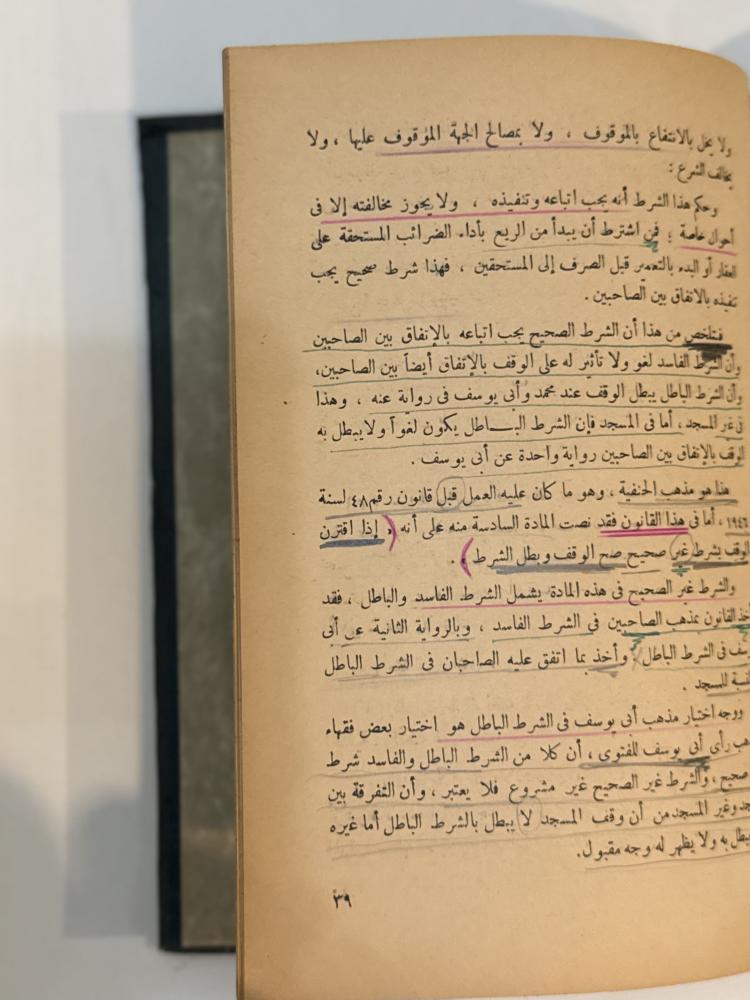 ولا يخل بالانتفاع بالموقوف ، ولا بمصالح الجهة الموقوف عليها ، ولا
يخالف الشرع :
وحكم هذا الشرط أنه يجب اتباعه وتنفيذه ، ولا يجوز مخالفته إلا فى
أحوال خاصة ؛ فمن اشترط أن يبدأ من الريع بأداء الضرائب المستحقة على
العقار أو البدء بالتعمير قبل الصرف إلى المستحقين ، فهذا شرط صحيح يجب
تنفيذه بالاتفاق بين الصاحبين .
فتلخص من هذا أن الشرط الصحيح يجب اتباعه بالإنفاق بين الصاحبين
وأن الشرط الفاسد لغو ولا تأثير له على الوقف بالإتفاق أيضاً بين الصاحبين،
وأن الشرط الباطل يبطل الوقف عند محمد وأبى يوسف فى رواية عنه ، وهذا
فى غير المسجد ، أما فى المسجد فإن الشرط البـــاطل يكون لغواً ولا يبطل به
الوقف بالإنفاق بين الصاحبين رواية واحدة عن أبى يوسف .
هذا هو مذهب الحنفية ، وهو ما كان عليه العمل قبل قانون رقم ٤٨ لسنة
١٩٤٦ ، أما فى هذا القانون فقد نصت المادة السادسة منه على أنه « إذا اقترن
الوقف بشرط غير صحيح صح الوقف وبطل الشرط » .
والشرط غير الصحيح فى هذه المادة يشمل الشرط الفاسد والباطل ، فقد
خذ القانون بمذهب الصاحبين فى الشرط الفاسد ، وبالرواية الثانية عن أبى
وسف فى الشرط الباطل ، وأخذ بما اتفق عليه الصاحبان فى الشرط الباطل
نسبة للمسجد .
ووجه اختيار مذهب أبى يوسف فى الشرط الباطل هو اختيار بعض فقهاء
هب رأى أبى يوسف للفتوى ، أن كلا من الشرط الباطل والفاسد شرط
صحيح ، والشرط غير الصحيح غير مشروع فلا يعتبر ، وأن التفرقة بين
جد وغير المسجد من أن وقف المسجد لا يبطل بالشرط الباطل أما غيره
يبطل به ولا يظهر له وجه مقبول.
٣٩